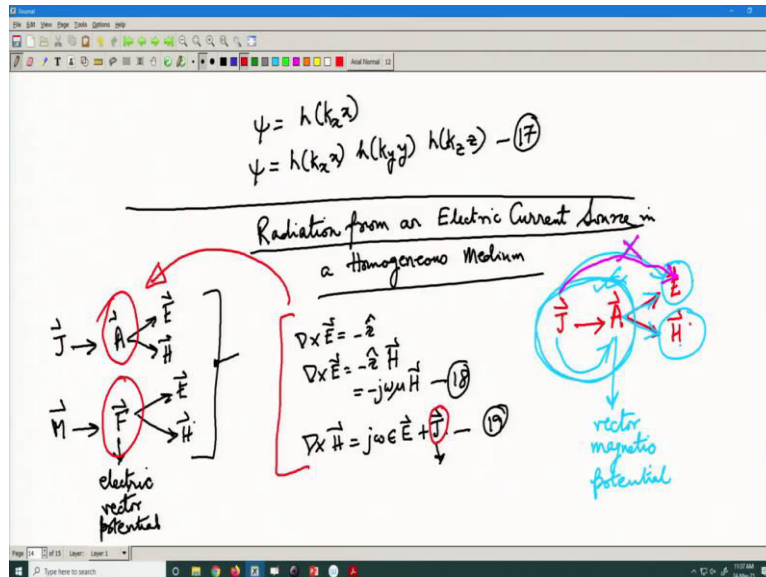 Journal
File Edit View Page Tools Options Help
Arial Normal 12
ψ = h(kₓx)
ψ = h(kₓx) h(k_y y) h(k_z z) — 17
Radiation from an Electric Current Source in
a Homogeneous Medium
J⃗ → A⃗ E⃗ H⃗
M⃗ → F⃗ E⃗ H⃗
electric
vector
potential
∇×E⃗ = -ẑ
∇×E⃗ = -ẑ H⃗
= -jωμ H⃗ — 18
∇×H⃗ = jωϵ E⃗ + J⃗ — 19
X
J⃗ → A⃗ E⃗ H⃗
vector
magnetic
potential
Page 14 of 15 Layer: Layer 1
Type here to search
11:07 AM